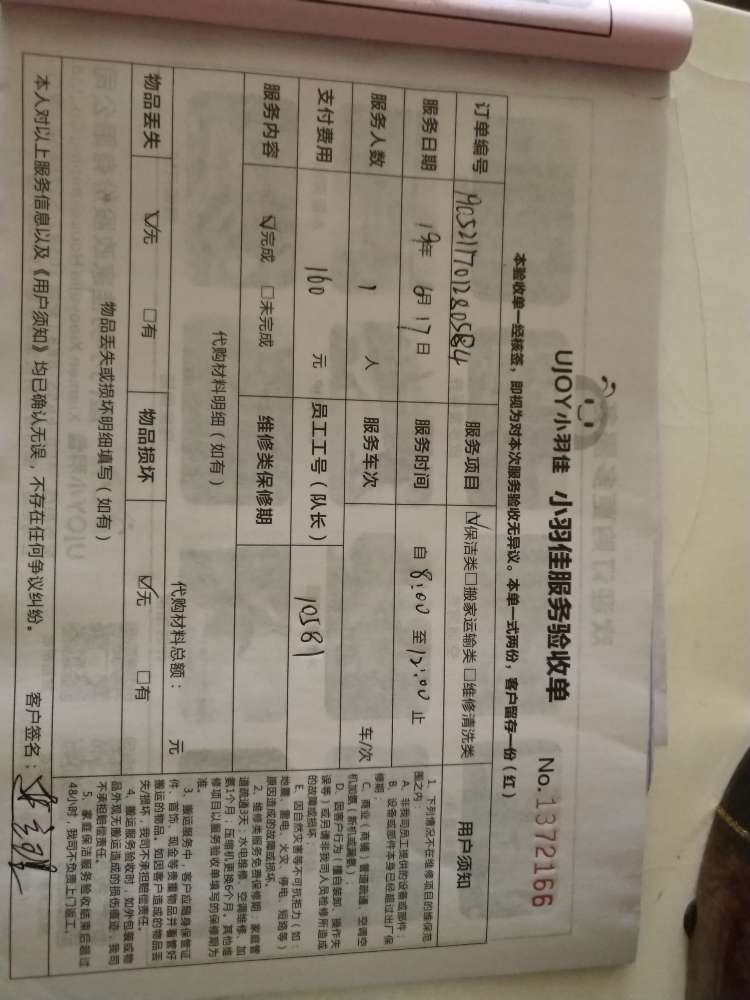 UJOY小羽佳 小羽佳服务验收单 No.1372166
本验收单一经核签，即视为对本次服务验收无异议。本单一式两份，客户留存一份（红）
订单编号 服务项目 ☑保洁类☐搬家运输类☐维修清洗类 用户须知
服务日期 19年 6月 17日 服务时间 自 8:00 至 12:00 止
服务人数 1 人 服务车次 车/次
支付费用 160 元 员工工号（队长） 10581
服务内容 ☑完成 ☐未完成 维修类保修期
代购材料明细（如有） 代购材料总额： 元
物品丢失 ☑无 ☐有 物品损坏 ☑无 ☐有
物品丢失或损坏明细填写（如有）
本人对以上服务信息以及《用户须知》均已确认无误，不存在任何争议纠纷。 客户签名：
1、下列情况不在维修项目的维保范
围之内：
A、非我司员工提供的设备或部件；
B、设备或部件本身已经超过出厂保
修期；
C、商业（商铺）管道疏通、空调空
机加氨（新机或漏氨）；
D、因客户行为（擅自装卸、操作失
误等）或另请非我司人员检修所造成
的故障或损坏；
E、因自然灾害等不可抗拒力（如：
地震、雷电、火灾、停电、短路等）
原因造成的故障或损坏。
2、维修类服务免费保修期：家庭管
道疏通3天；水电维修、空调维修、加
氨1个月；压缩机更换6个月。其他维
修项目以服务验收单填写的保修期为
准。
3、搬运服务中，客户应随身保管证
件、首饰、现金等贵重物品并看管好
搬运的物品。如因客户造成的物品丢
失/损坏，我司不承担赔偿责任。
4、搬运服务验收时，如外包装或物
品外观无搬运造成的损伤痕迹，我司
不承担赔偿责任。
5、家庭保洁服务验收结束后超过
48小时，我司不负责上门返工。